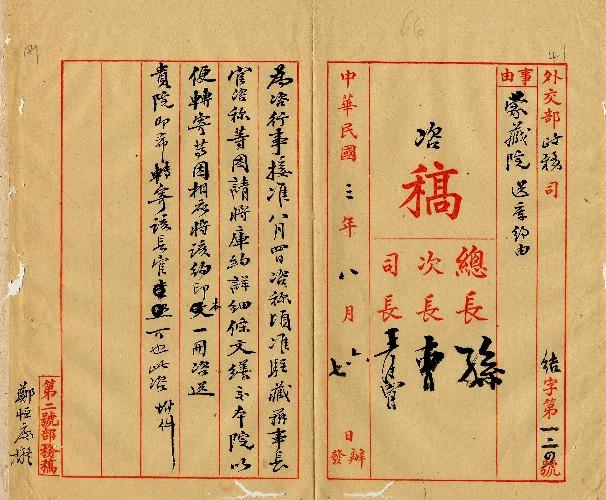 66
外交部政務司
結字第一二〇號
事由
蒙藏院 送庫約由
咨
稿
總長 孫
次長 曹
司長
中華民國三年八月六七日辦發
為咨行事接准八月四日咨稱頃准駐藏辦事長
官咨稱等因請將庫約詳細條文繕交本院以
便轉寄等因相應將該約印本一冊咨送
貴院即希轉寄該長官可也此咨 附件
第二號部務稿
189